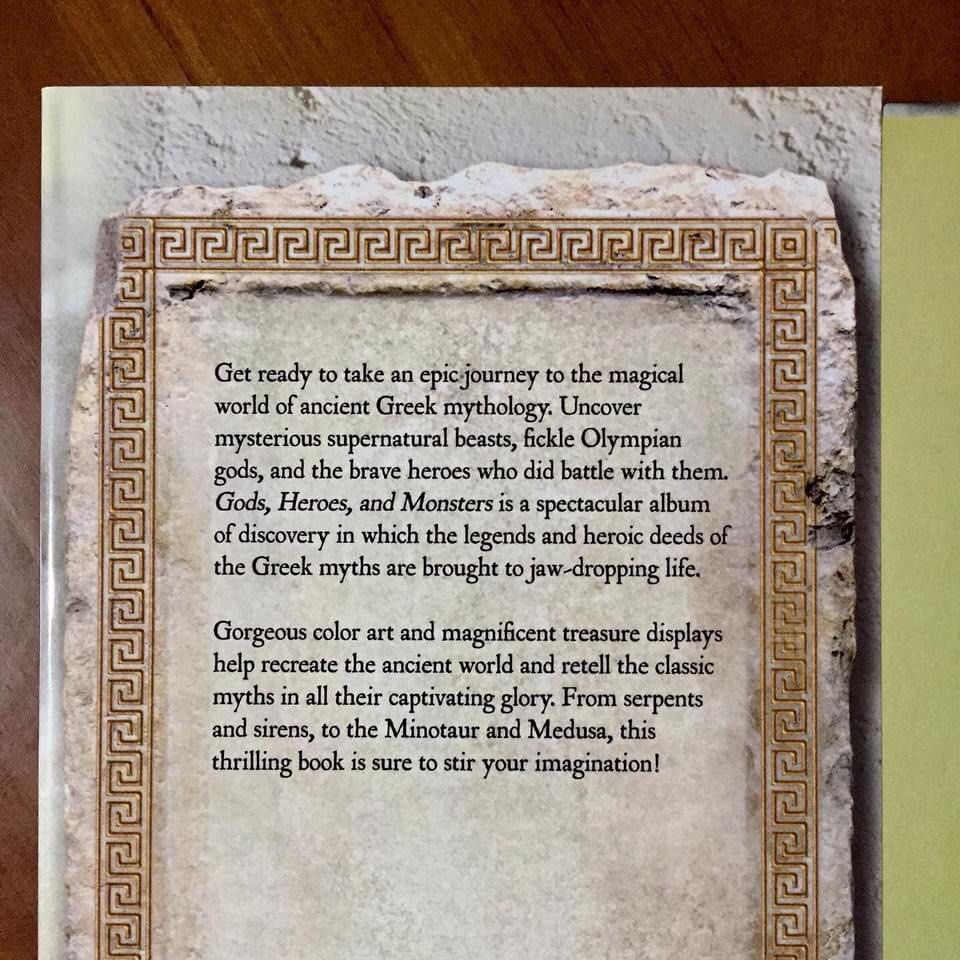 Get ready to take an epic journey to the magical
world of ancient Greek mythology. Uncover
mysterious supernatural beasts, fickle Olympian
gods, and the brave heroes who did battle with them.
Gods, Heroes, and Monsters is a spectacular album
of discovery in which the legends and heroic deeds of
the Greek myths are brought to jaw-dropping life.
Gorgeous color art and magnificent treasure displays
help recreate the ancient world and retell the classic
myths in all their captivating glory. From serpents
and sirens, to the Minotaur and Medusa, this
thrilling book is sure to stir your imagination!